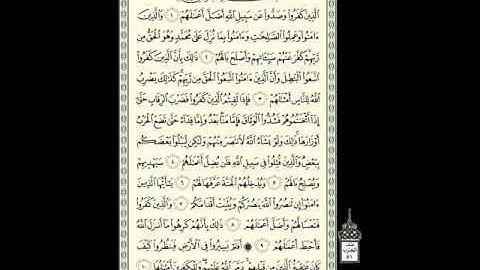 ٱلَّذِينَ كَفَرُوا۟ وَصَدُّوا۟ عَن سَبِيلِ ٱللَّهِ أَضَلَّ أَعْمَٰلَهُمْ ١ وَٱلَّذِينَ
ءَامَنُوا۟ وَعَمِلُوا۟ ٱلصَّٰلِحَٰتِ وَءَامَنُوا۟ بِمَا نُزِّلَ عَلَىٰ مُحَمَّدٍ وَهُوَ ٱلْحَقُّ مِن
رَّبِّهِمْ كَفَّرَ عَنْهُمْ سَيِّـَٔاتِهِمْ وَأَصْلَحَ بَالَهُمْ ٢ ذَٰلِكَ بِأَنَّ ٱلَّذِينَ كَفَرُوا۟
ٱتَّبَعُوا۟ ٱلْبَٰطِلَ وَأَنَّ ٱلَّذِينَ ءَامَنُوا۟ ٱتَّبَعُوا۟ ٱلْحَقَّ مِن رَّبِّهِمْ كَذَٰلِكَ يَضْرِبُ
ٱللَّهُ لِلنَّاسِ أَمْثَٰلَهُمْ ٣ فَإِذَا لَقِيتُمُ ٱلَّذِينَ كَفَرُوا۟ فَضَرْبَ ٱلرِّقَابِ حَتَّىٰٓ
إِذَآ أَثْخَنتُمُوهُمْ فَشُدُّوا۟ ٱلْوَثَاقَ فَإِمَّا مَنًّۢا بَعْدُ وَإِمَّا فِدَآءً حَتَّىٰ تَضَعَ ٱلْحَرْبُ
أَوْزَارَهَا ذَٰلِكَ وَلَوْ يَشَآءُ ٱللَّهُ لَٱنتَصَرَ مِنْهُمْ وَلَٰكِن لِّيَبْلُوَا۟ بَعْضَكُم
بِبَعْضٍ وَٱلَّذِينَ قُتِلُوا۟ فِى سَبِيلِ ٱللَّهِ فَلَن يُضِلَّ أَعْمَٰلَهُمْ ٤ سَيَهْدِيهِمْ
وَيُصْلِحُ بَالَهُمْ ٥ وَيُدْخِلُهُمُ ٱلْجَنَّةَ عَرَّفَهَا لَهُمْ ٦ يَٰٓأَيُّهَا ٱلَّذِينَ
ءَامَنُوٓا۟ إِن تَنصُرُوا۟ ٱللَّهَ يَنصُرْكُمْ وَيُثَبِّتْ أَقْدَامَكُمْ ٧ وَٱلَّذِينَ كَفَرُوا۟
فَتَعْسًا لَّهُمْ وَأَضَلَّ أَعْمَٰلَهُمْ ٨ ذَٰلِكَ بِأَنَّهُمْ كَرِهُوا۟ مَآ أَنزَلَ ٱللَّهُ
فَأَحْبَطَ أَعْمَٰلَهُمْ ٩ ۞ أَفَلَمْ يَسِيرُوا۟ فِى ٱلْأَرْضِ فَيَنظُرُوا۟ كَيْفَ
كَانَ عَٰقِبَةُ ٱلَّذِينَ مِن قَبْلِهِمْ دَمَّرَ ٱللَّهُ عَلَيْهِمْ وَلِلْكَٰفِرِينَ أَمْثَٰلُهَا ١٠
الحزب
٥١